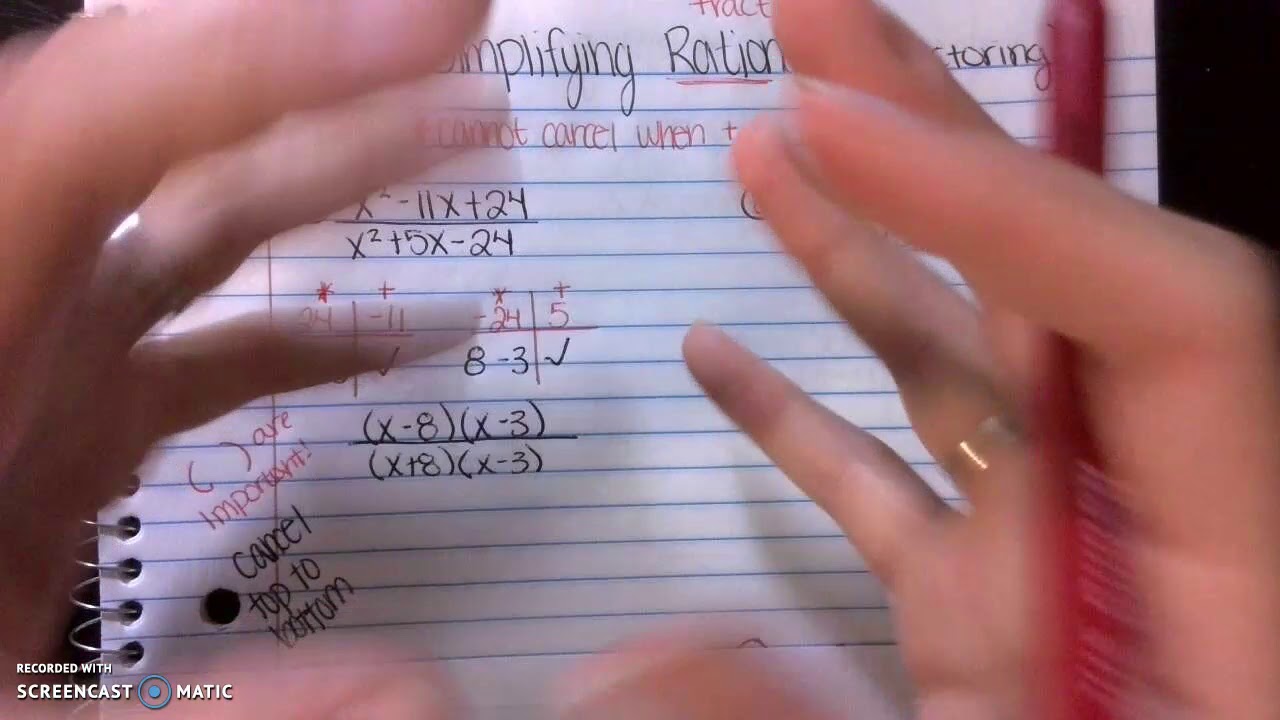 fract
Simplifying Ration toring
cannot cancel when +
x² - 11x + 24
x² + 5x - 24
* + * +
24 -11 -24 5
✓ 8 -3 ✓
(x - 8)(x - 3)
(x + 8)(x - 3)
( ) are
important!
cancel
top to
bottom
RECORDED WITH
SCREENCAST MATIC